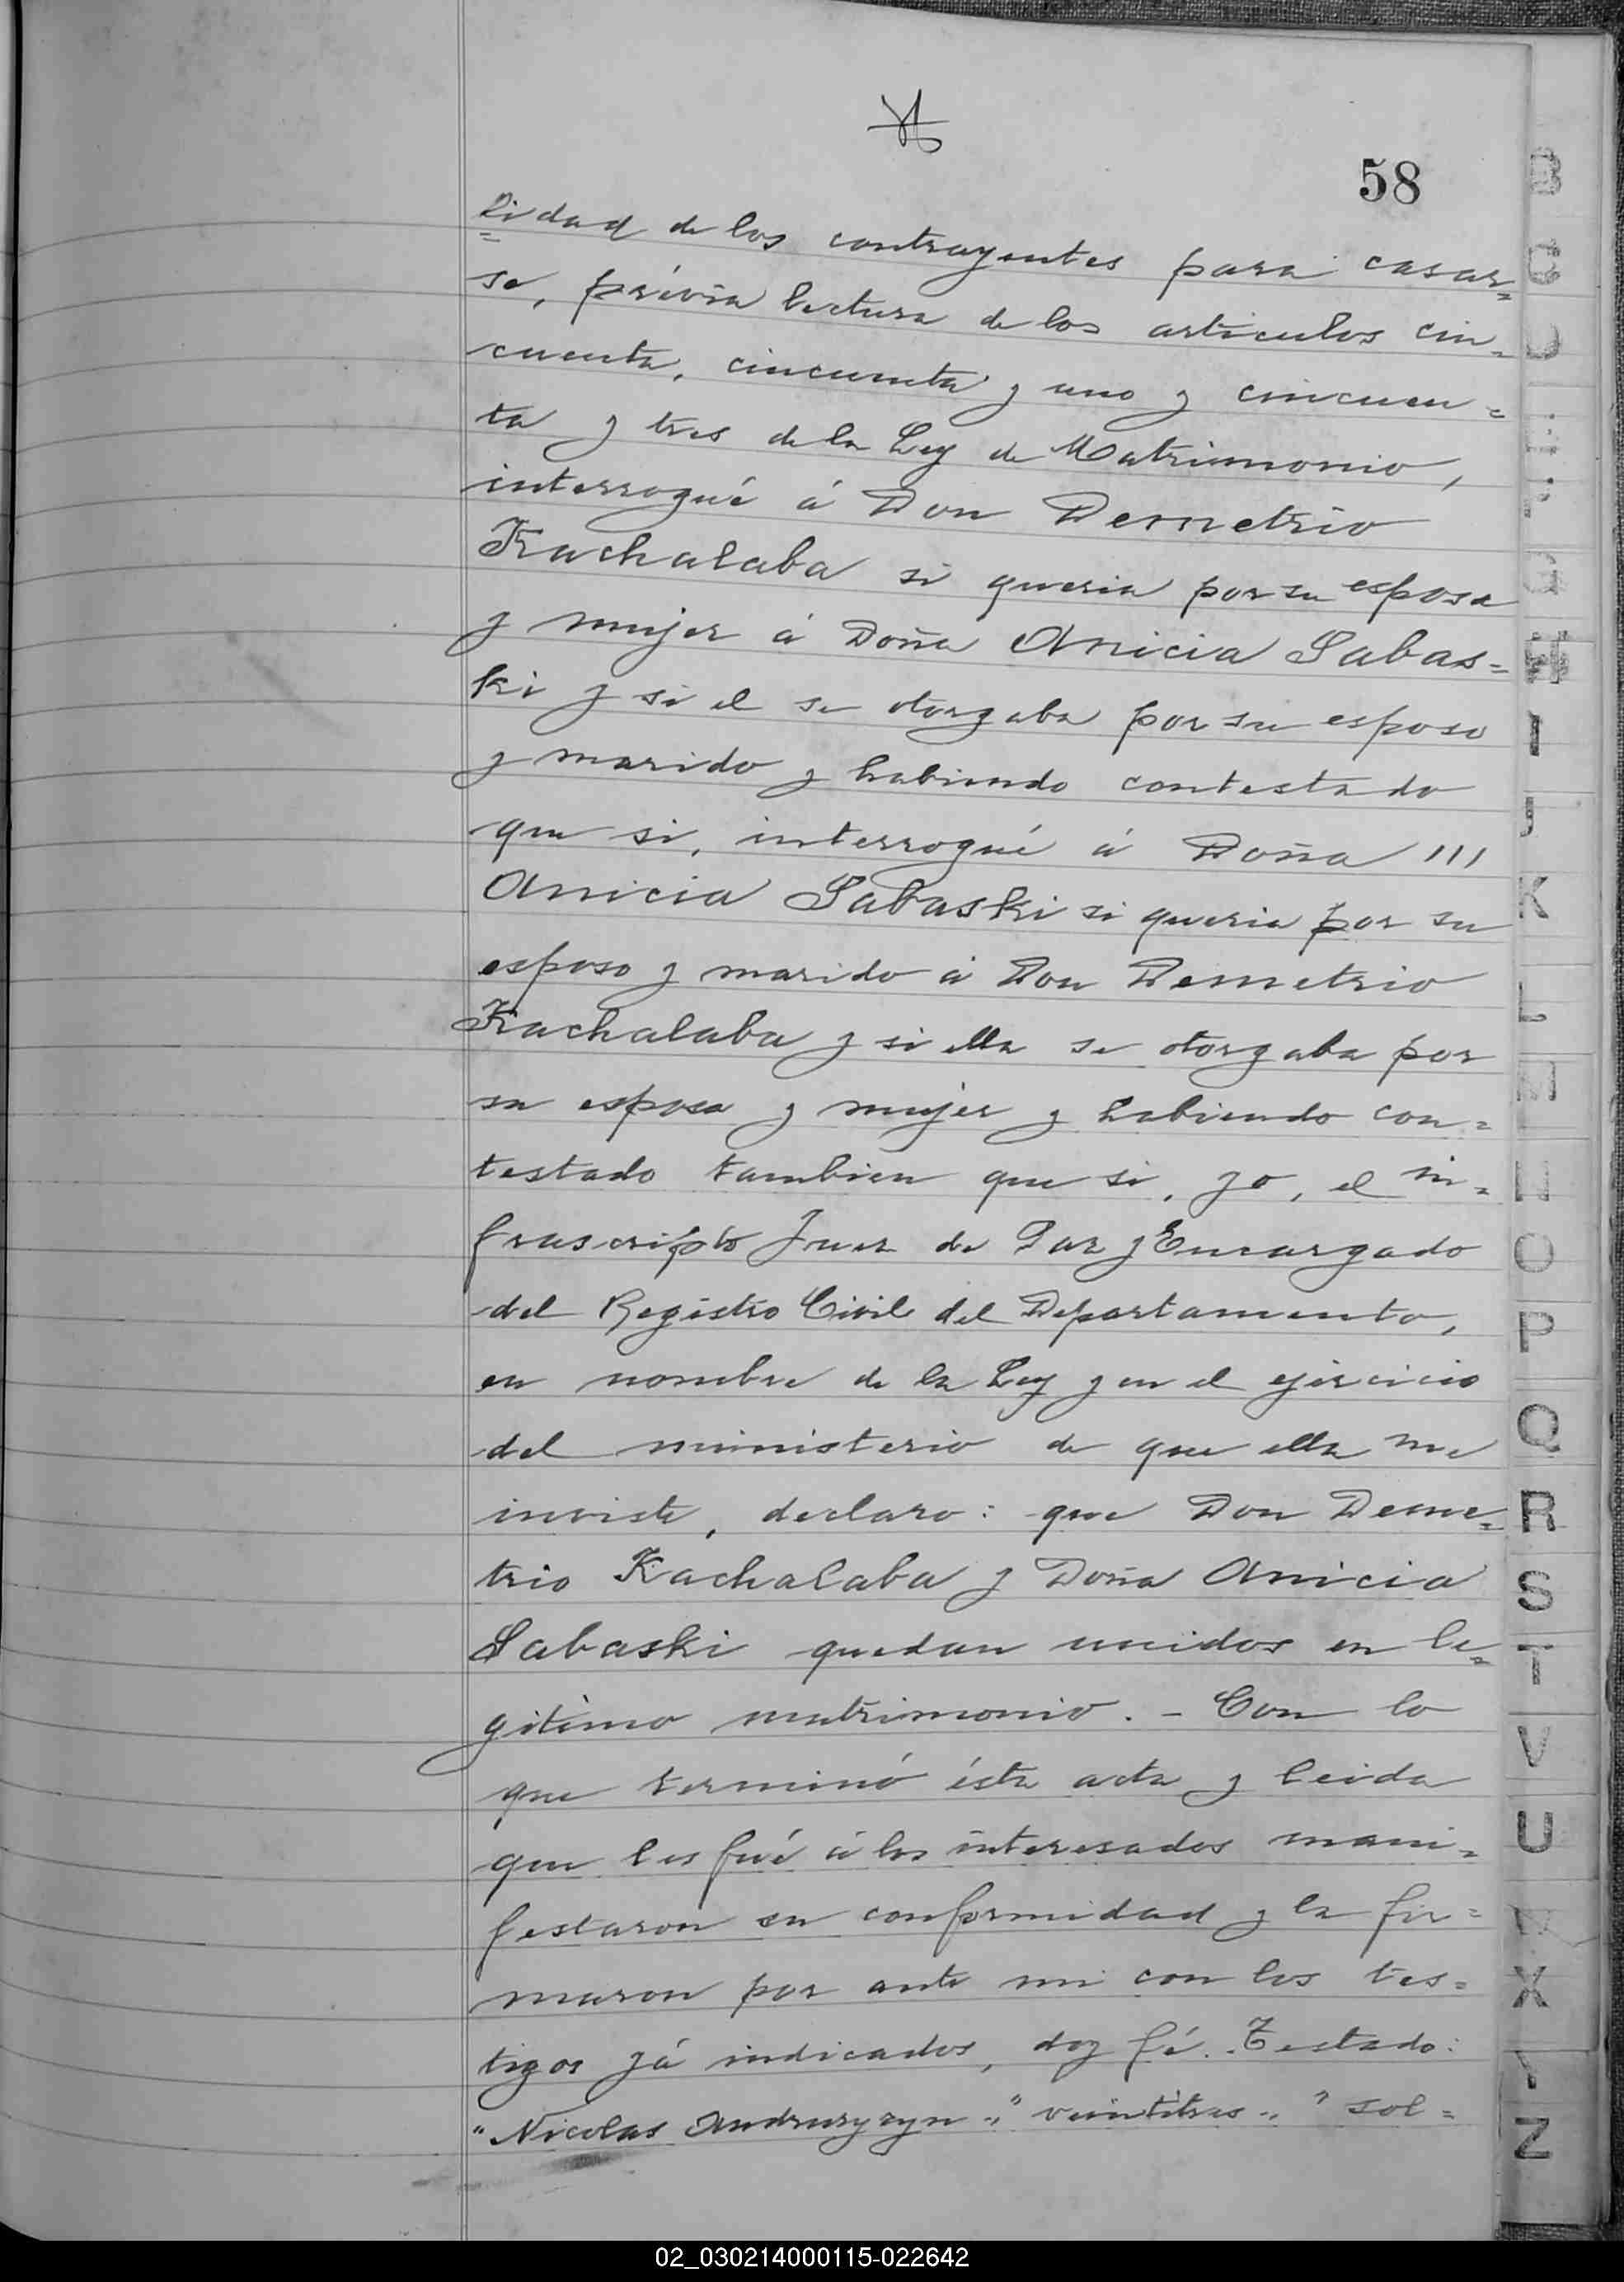 58
lidad de los contrayentes para casar=
se, prévia lectura de los articulos cin=
cuenta, cincuenta y uno y cincuen=
ta y tres de la Ley de Matrimonio,
interrogué á Don Demetrio
Kachalaba si queria por su esposa
y mujer á Doña Anicia Sabas=
ki y si el se otorgaba por su esposo
y marido y habiendo contestado
que si, interrogué á Doña ///
Anicia Sabaski si queria por su
esposo y marido á Don Demetrio
Kachalaba y si ella se otorgaba por
su esposa y mujer y habiendo con=
testado tambien que si, yo, el in=
frascripto Juez de Paz y Encargado
del Registro Civil del Departamento,
en nombre de la Ley y en el ejercicio
del ministerio de que ella me
inviste, declaro: que Don Deme=
trio Kachalaba y Doña Anicia
Sabaski quedan unidos en le=
gitimo matrimonio. - Con lo
que terminó ésta acta y leida
que les fué á los interesados mani=
festaron su conformidad y la fir=
maron por ante mi con los tes=
tigos yá indicados, doy fé. Testado:
"Nicolas Andruszyzyn" "veintitres" "sol=
B
C
D
H
I
J
K
L
M
N
O
P
Q
R
S
T
V
U
W
X
Y
Z
02_030214000115-022642